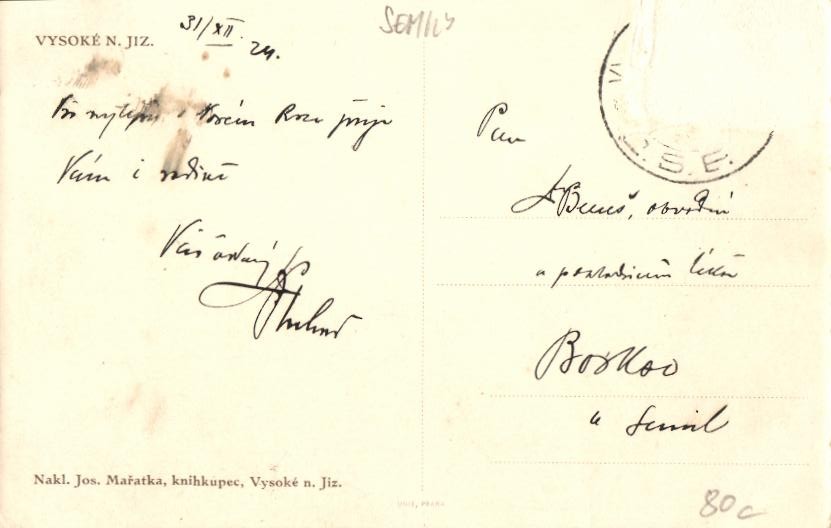 SEMILY
VYSOKÉ N. JIZ.
31/XII. 24.
Vše nejlepší v Novém Roce přeje
Vám i rodině
Váš oddaný
Pan
Beneš, obvodní
a pokladniční lékař
Bozkov
u Semil
Nakl. Jos. Mařatka, knihkupec, Vysoké n. Jiz.
UNIE, PRAHA
80c